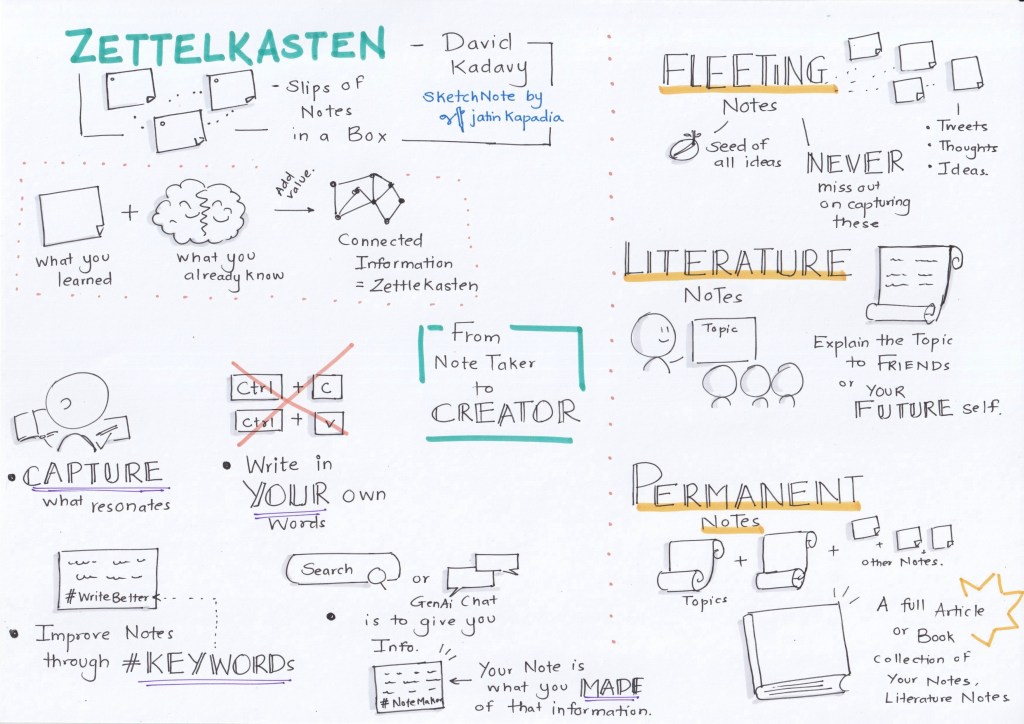 ZETTELKASTEN
- David
Kadavy
SketchNote by
jatin Kapadia
- Slips of
Notes
in a Box
what you
learned
+
what you
already know
Add
value.
Connected
Information
= Zettlekasten
From
Note Taker
to
CREATOR
• CAPTURE
what resonates
Ctrl + C
Ctrl + V
• Write in
YOUR own
Words
#WriteBetter
• Improve Notes
through #KEYWORDs
Search
or
GenAi Chat
• is to give you
Info.
#NoteMaker
Your Note is
what you MADE
of that information.
FLEETING
Notes
Seed of
all ideas
NEVER
miss out
on capturing
these
• Tweets
• Thoughts
• Ideas.
LITERATURE
NOTES
Topic
Explain the Topic
to FRIENDS
or YOUR
FUTURE self.
PERMANENT
NOTES
+
+
+
Topics
other Notes.
A full Article
or Book
Collection of
Your Notes,
Literature Notes